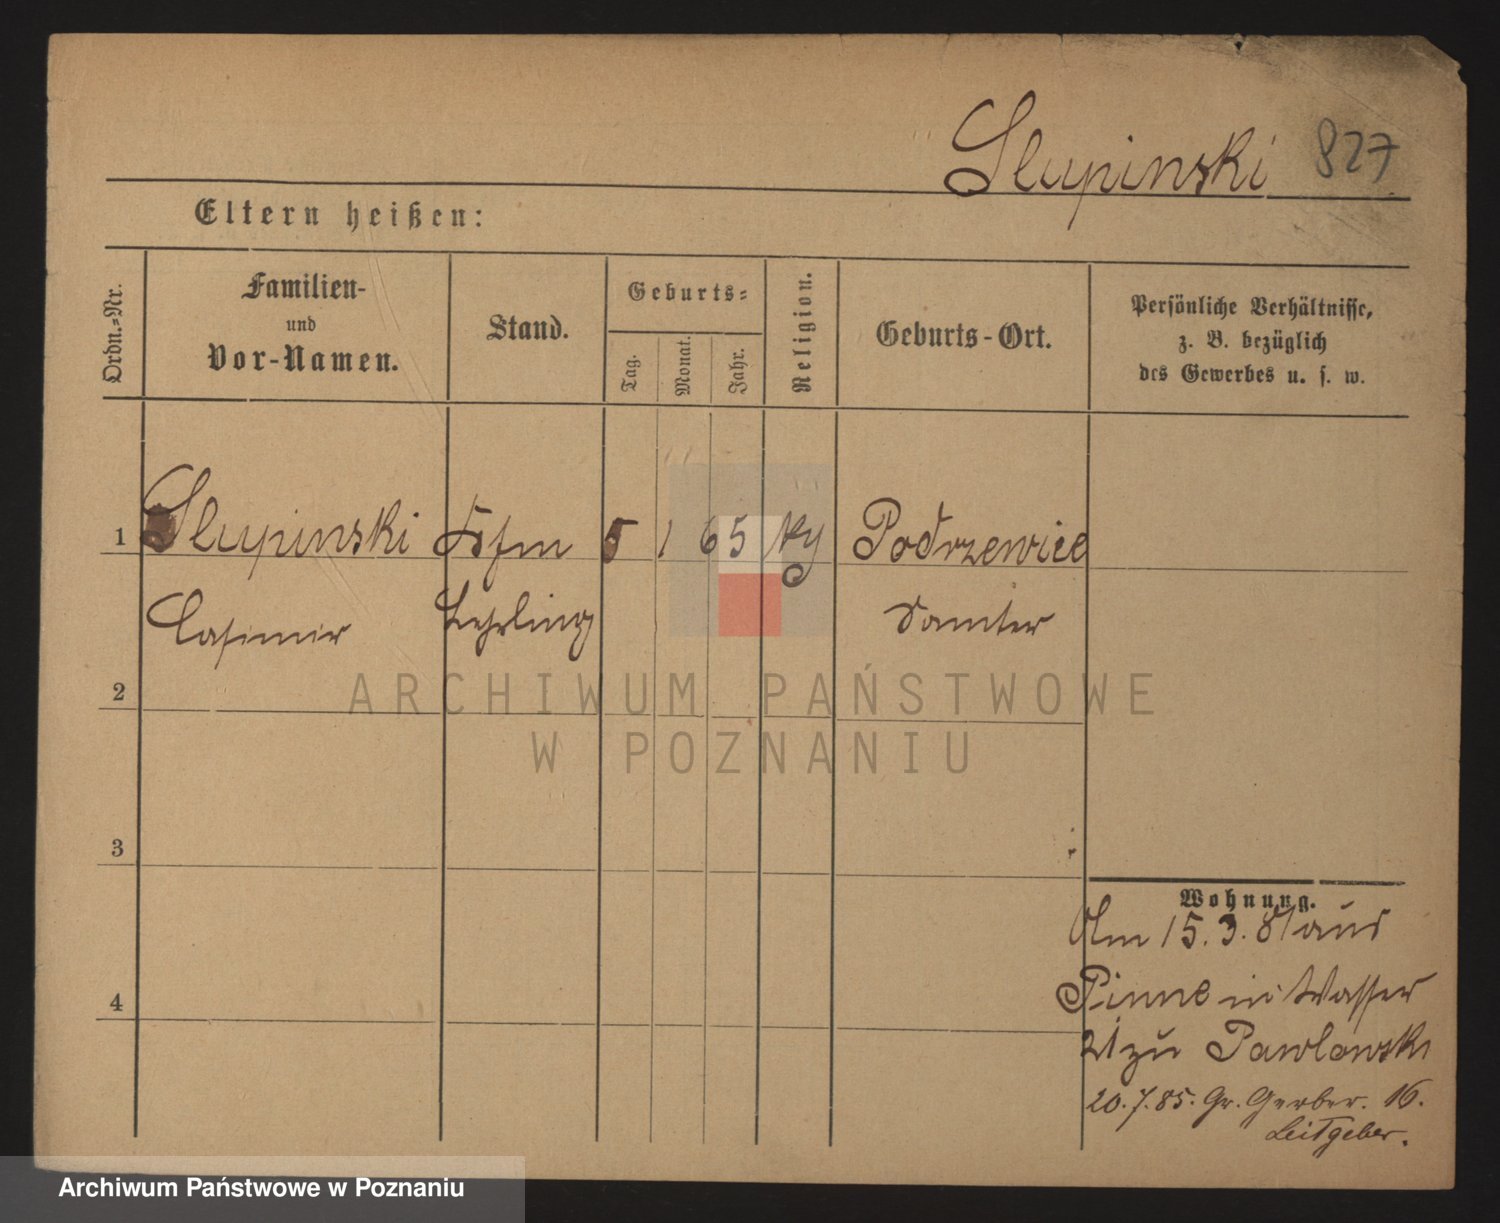 Slupinski 827
Eltern heißen:
Ordn.-Nr.
Familien-
und
Vor-Namen.
Stand.
Geburts-
Tag.
Monat.
Jahr.
Religion.
Geburts-Ort.
Persönliche Verhältnisse,
z. B. bezüglich
des Gewerbes u. s. w.
1 Slupinski 5 1 65 Podrzewice
Casimir Lehrling Samter
2
3
4
Wohnung.
Am 15.3.81 aus
Pinne in Wasser
21 zu Pawlowski
20.7.85. Gr. Gerber. 16.
Leitgeber.
ARCHIWUM PAŃSTWOWE
W POZNANIU
Archiwum Państwowe w Poznaniu